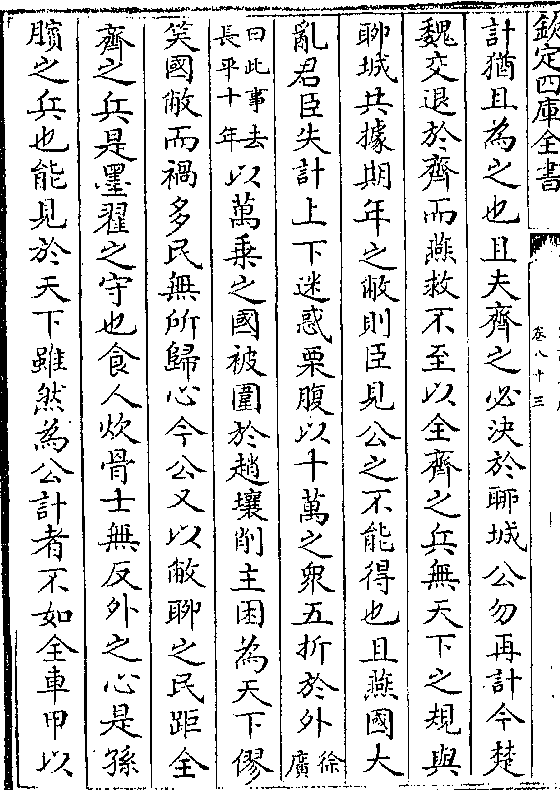 欽定四庫全書
卷八十三
計猶且為之也且夫齊之必決於聊城公勿再計今楚
魏交退於齊而燕救不至以全齊之兵無天下之規與
聊城共據期年之敝則臣見公之不能得也且燕國大
亂君臣失計上下迷惑栗腹以十萬之衆五折於外徐廣
曰此事去長平十年以萬乗之國被圍於趙壤削主困為天下僇
笑國敝而禍多民無所歸心今公又以敝聊之民距全
齊之兵是墨翟之守也食人炊骨士無反外之心是孫
臏之兵也能見於天下雖然為公計者不如全車甲以